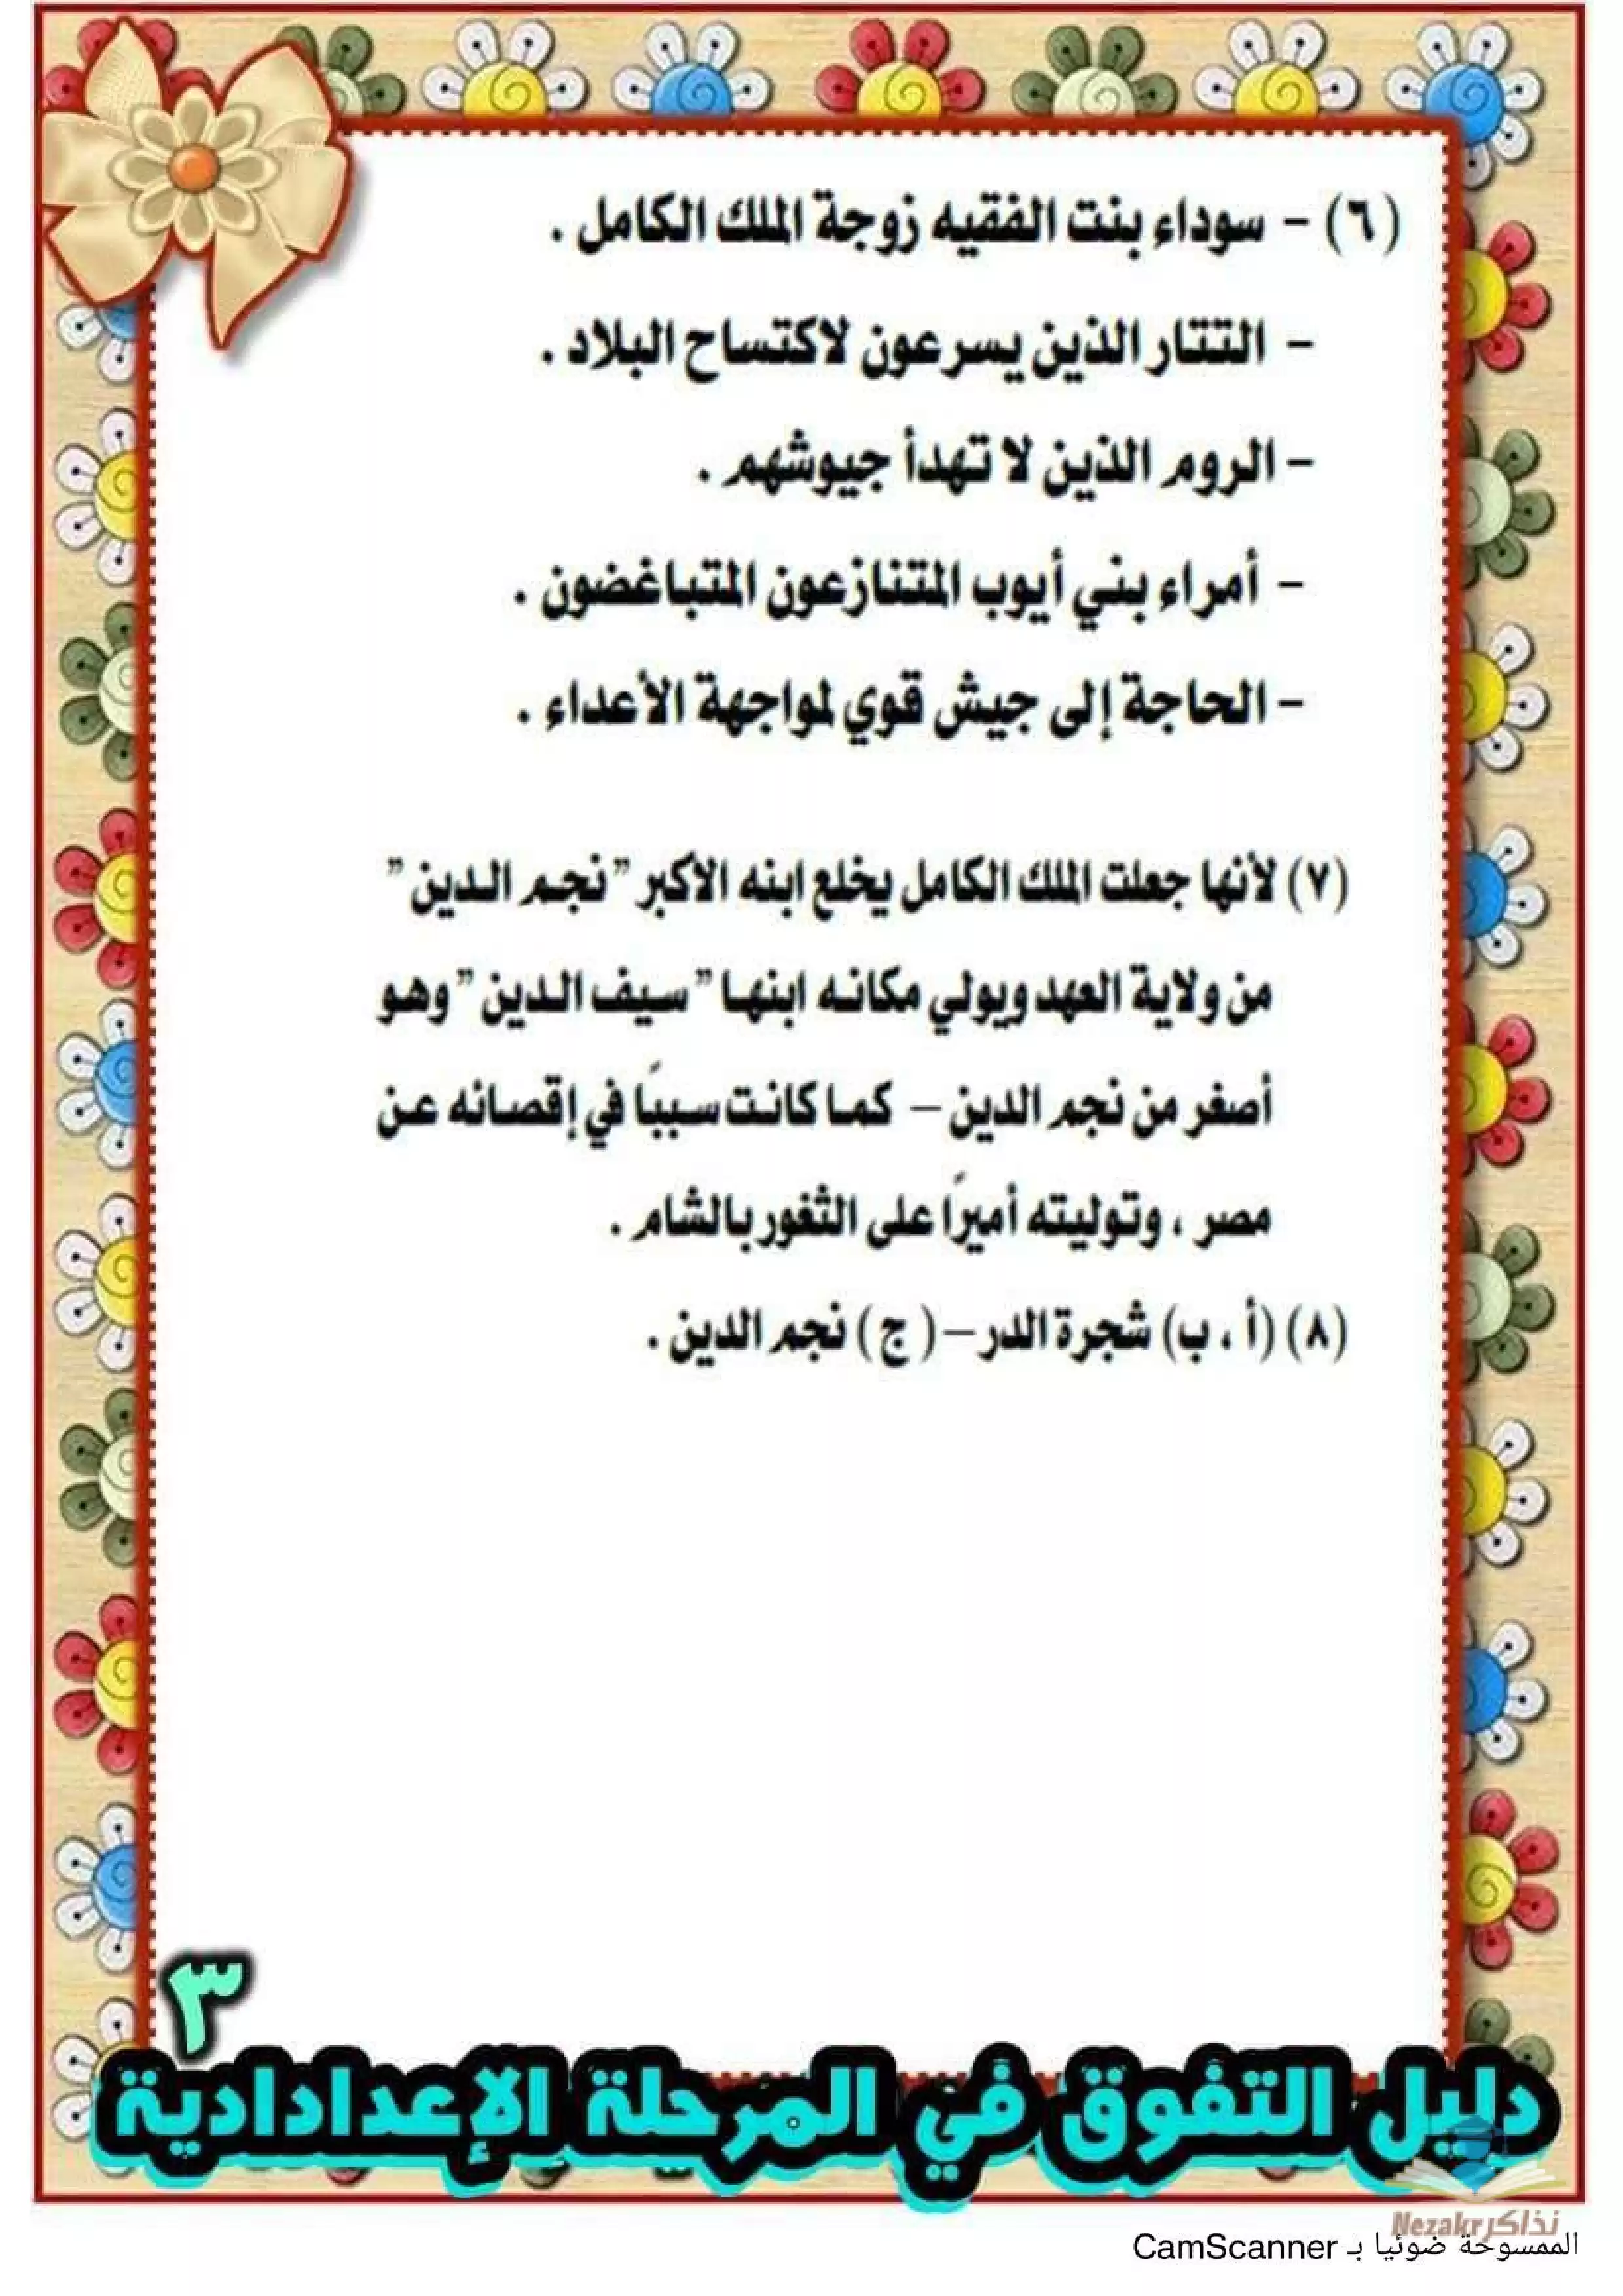 (٦) - سوداء بنت الفقيه زوجة الملك الكامل .
- التتار الذين يسرعون لاكتساح البلاد .
- الروم الذين لا تهدأ جيوشهم .
- أمراء بني أيوب المتنازعون المتباغضون .
- الحاجة إلى جيش قوي لمواجهة الأعداء .
(٧) لأنها جعلت الملك الكامل يخلع ابنه الأكبر " نجم الدين "
من ولاية العهد ويولي مكانه ابنها " سيف الدين " وهو
أصغر من نجم الدين – كما كانت سببًا في إقصائه عن
مصر ، وتوليته أميرًا على الثغور بالشام .
(٨) (أ ، ب) شجرة الدر – ( ج ) نجم الدين .
٣
دليل التفوق في المرحلة الإعدادادية
نذاكر Nezakr
الممسوحة ضوئيا بـ CamScanner